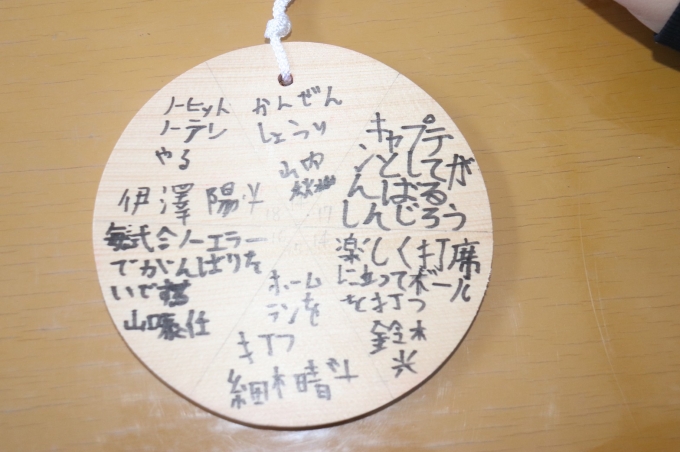 ノーヒット
ノーテン
やる
伊澤陽
かんぜん
しょうり
山内
キャプテ
ンとしてが
んばる
しんじろう
毎試合ノーエラー
でがんばりた
いです
山口
ホーム
ランを
打つ
細木晴
楽しく打席
に立ってボール
を打つ
鈴木